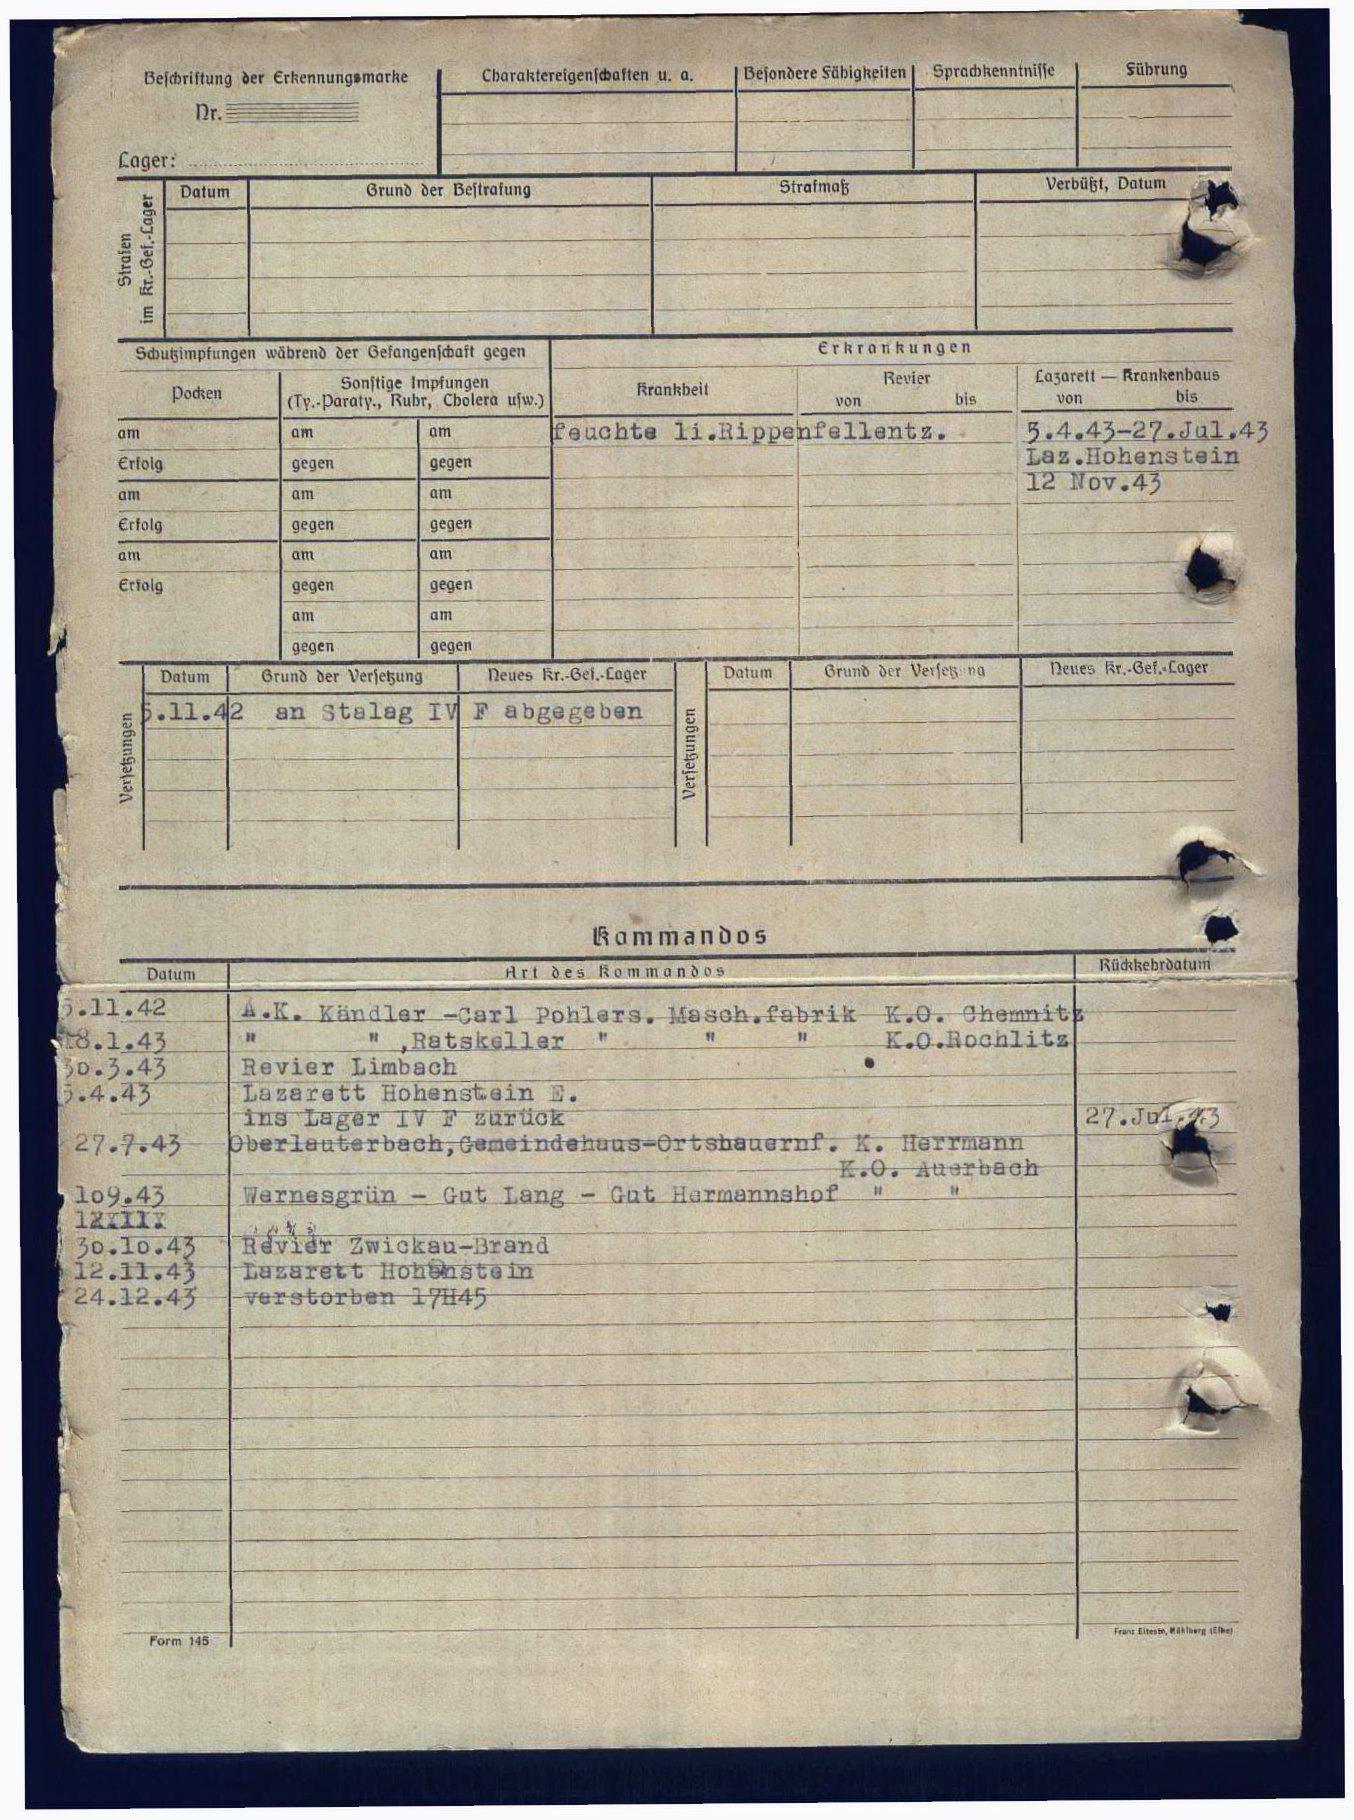 Beschriftung der Erkennungsmarke
Nr.
Lager:
Charaktereigenschaften u. a.
Besondere Fähigkeiten
Sprachkenntnisse
Führung
Strafen
im Kr.-Gef.-Lager
Datum
Grund der Bestrafung
Strafmaß
Verbüßt, Datum
Schutzimpfungen während der Gefangenschaft gegen
Erkrankungen
Pocken
Sonstige Impfungen
(Ty.-Paraty., Ruhr, Cholera usw.)
Krankheit
Revier
von bis
Lazarett — Krankenhaus
von bis
am am am feuchte li.Rippenfellentz. 5.4.43-27.Jul.43
Erfolg gegen gegen Laz.Hohenstein
am am am 12 Nov.43
Erfolg gegen gegen
am am am
Erfolg gegen gegen
am am
gegen gegen
Versetzungen
Datum Grund der Versetzung Neues Kr.-Gef.-Lager
5.11.42 an Stalag IV F abgegeben
Versetzungen
Datum Grund der Versetzung Neues Kr.-Gef.-Lager
Kommandos
Datum Art des Kommandos Rückkehrdatum
5.11.42 A.K. Kändler -Carl Pohlers. Masch.fabrik K.O. Chemnitz
18.1.43 " " ,Ratskeller " " " K.O.Rochlitz
30.3.43 Revier Limbach
5.4.43 Lazarett Hohenstein E.
ins Lager IV F zurück 27.Jul.43
27.7.43 Oberlauterbach,Gemeindehaus-Ortsbauernf. K. Herrmann
K.O. Auerbach
1o9.43 Wernesgrün - Gut Lang - Gut Hermannshof " "
30.10.43 Revier Zwickau-Brand
12.11.43 Lazarett Hohenstein
24.12.43 verstorben 17H45
Form 145
Franz Elteste, Mühlberg (Elbe)